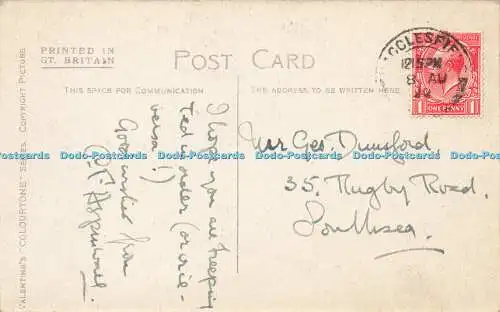 PRINTED IN
GT. BRITAIN
POST CARD
THIS SPACE FOR COMMUNICATION
THE ADDRESS TO BE WRITTEN HERE
VALENTINE'S "COLOURTONE" SERIES. COPYRIGHT PICTURE.
I hope you are keeping
Ted in order (or vice-
versa!)
Good wishes from
Aspinall.
Geo. Dunsford
35. Rugby Road.
Southsea.
ECCLESFIE
12.15 PM
8 AU
ONE PENNY
Dodo-Postcards Dodo-Postcards Dodo-Postcards Dodo-Postcards Dodo-Postcards Dodo-Postcards